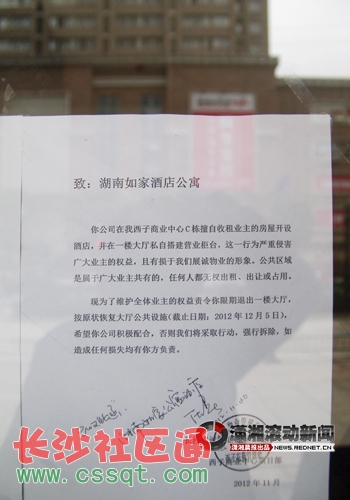 致：湖南如家酒店公寓
你公司在我西子商业中心C栋擅自收租业主的房屋开设
酒店，并在一楼大厅私自搭建营业柜台，这一行为严重侵害
广大业主的权益，且有损于我们展诚物业的形象。公共区域
是属于广大业主共有的，任何人都无权出租、出让或占用。
现为了维护全体业主的权益责令你限期退出一楼大厅，
按原状恢复大厅公共设施（截止日期：2012年12月5日），
希望你公司积极配合，否则我们将采取行动，强行拆除，如
造成任何损失均有你方负责。
潇湘滚动新闻
潇湘晨报出品 NEWS.REDNET.CN
长沙社区通
www.cssqt.com
西子商业中心项目部
2012年11月